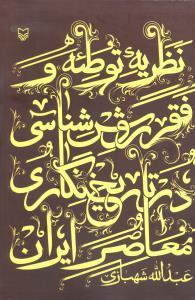 نظریه‌ٔ توطئه و
فقر روش‌شناسی
در تاریخ‌نگاری
معاصر ایران
عبدالله شهبازی